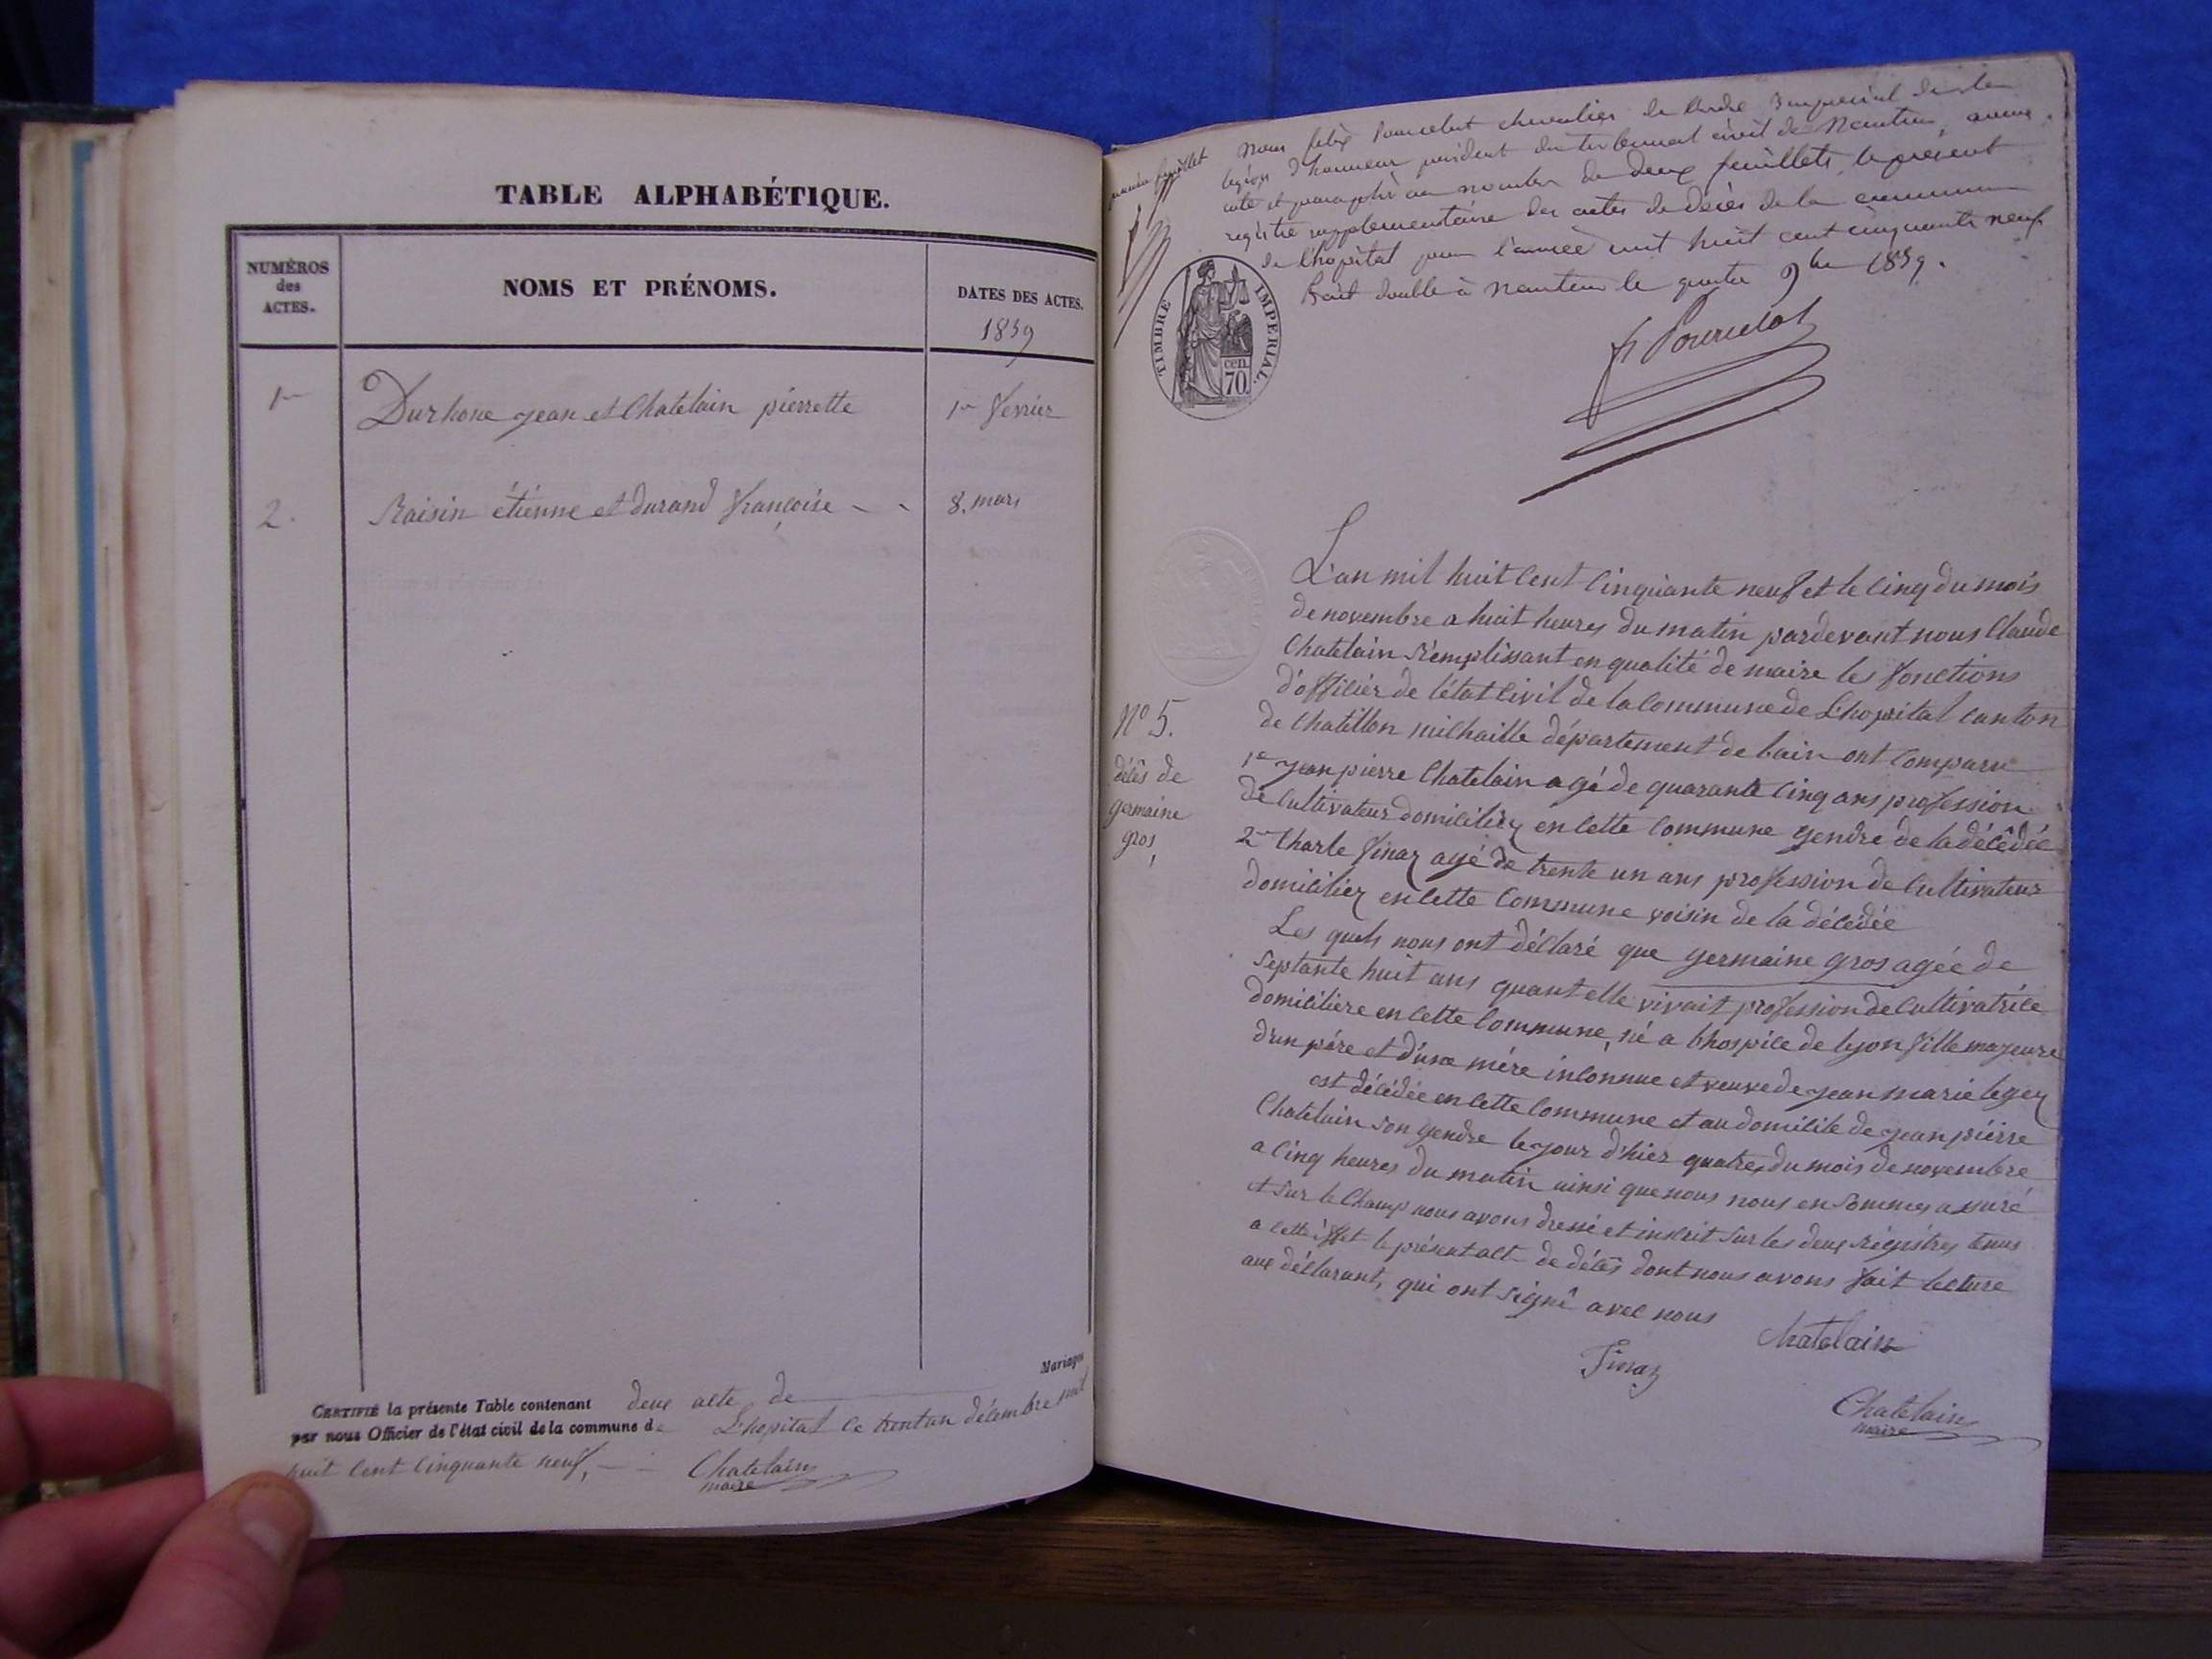 TABLE ALPHABÉTIQUE.
NUMÉROS
des
ACTES.
NOMS ET PRÉNOMS.
DATES DES ACTES.
1859
1er Durhone jean et Chatelain pierrette 1er fevrier
2. Raisin étienne et durand françoise - - 8. mars
Mariages
CERTIFIÉ la présente Table contenant deux acte de
par nous Officier de l'état civil de la commune de L'hopital le trentun décembre mil
huit cent cinquante neuf,
Chatelain
maire
premier feuillet
Nous félix Pourcelot chevalier de l'ordre Imperial de la
légion d'honneur président du tribunal civil de Nantua, avons
coté et paraphé au nombre de deux feuillets, le présent
registre supplementaire des actes de décès de la commune
de l'hopital pour l'année mil huit cent cinquante neuf
Fait double à Nantua le quatre 9bre 1859.
TIMBRE IMPERIAL.
cen.
70
f Pourcelot
L'an mil huit cent cinquante neuf et le cinq du mois
de novembre a huit heures du matin pardevant nous Claude
Chatelain remplissant en qualité de maire les fonctions
d'officier de l'état civil de la commune de L'hopital canton
de Chatillon michaille département de lain ont comparu
1er jean pierre Chatelain agé de quarante cinq ans profession
de cultivateur domiciliez en cette commune gendre de la décédée
2me Charle finaz agé de trente un ans profession de cultivateur
domiciliez en cette commune voisin de la décédée
Les quels nous ont déclaré que germaine gros agée de
septante huit ans quant elle vivait profession de cultivatrice
domicilière en cette commune, né a lhospice de lyon fille majeure
d'un père et d'une mére inconnue et veuve de jean marie leger
est décédée en cette commune et au domicile de jean pierre
Chatelain son gendre le jour d'hier quatre du mois de novembre
a cinq heures du matin ainsi que nous nous en sommes assuré
et sur le champ nous avons dressé et inscrit sur les deux régistres tenus
a cette éffet le présent act de décès dont nous avons fait lecture
aux déclarant, qui ont signé avec nous
N° 5.
décès de
germaine
gros
Chatelain
Finaz
Chatelain
maire